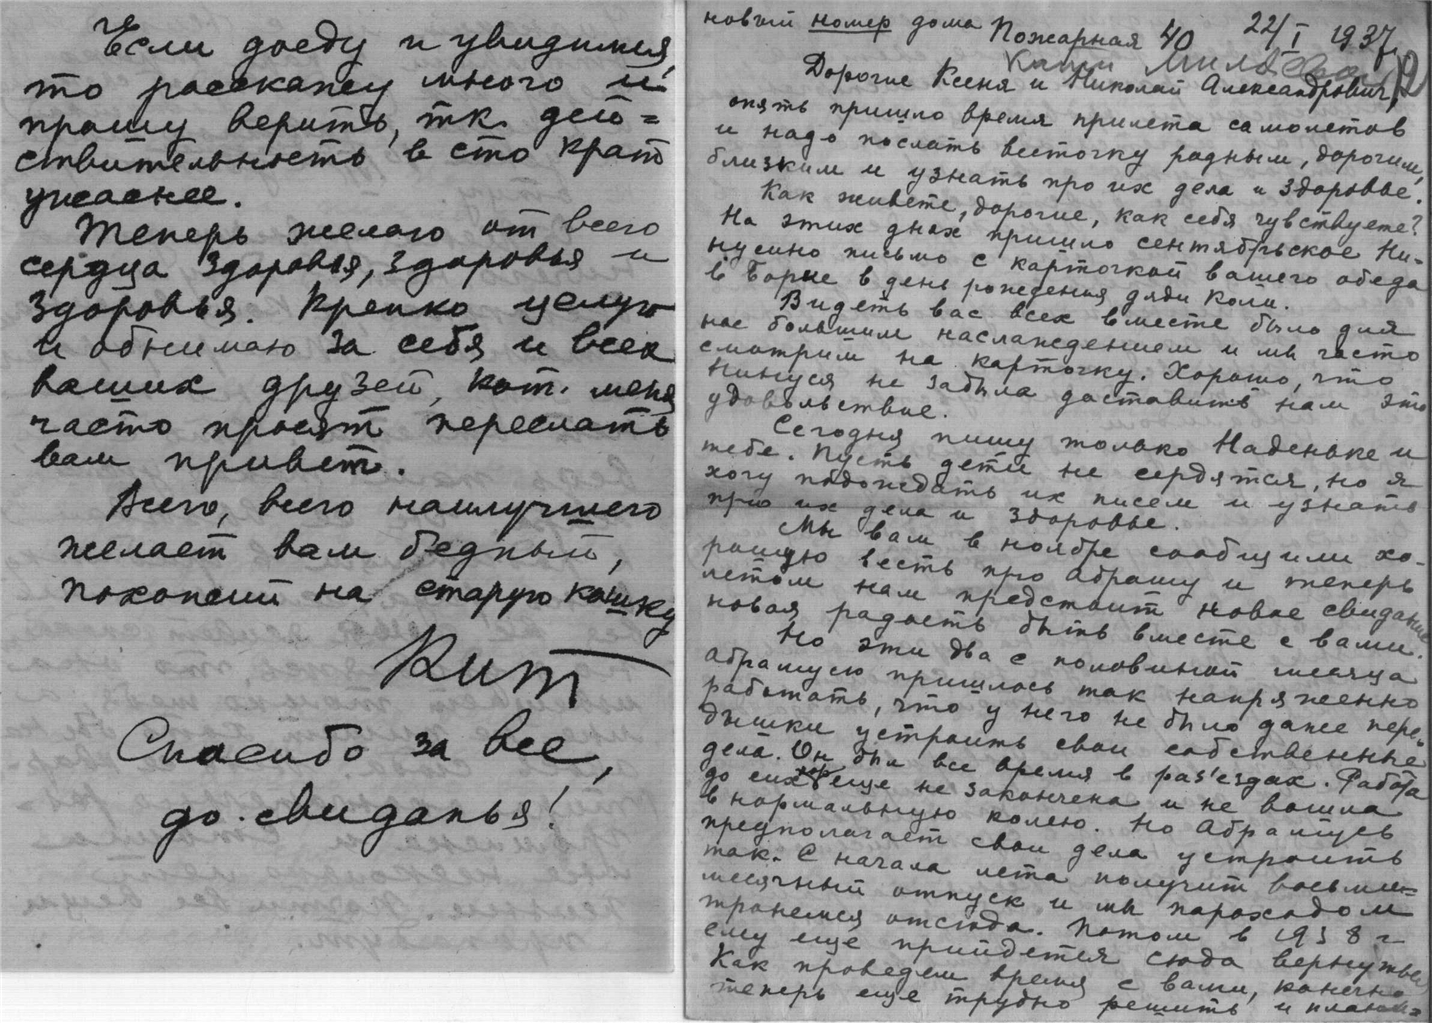 Если доеду и увидимся,
то расскажу много и
прошу верить, тк. дей=
ствительность в сто крат
ужаснее.
Теперь желаю от всего
сердца здоровья, здоровья и
здоровья. Крепко целую
и обнимаю за себя и всех
ваших друзей, кот. меня
часто просят переслать
вам привет.
Всего, всего наилучшего
желает вам бедный,
похожий на старую кошку
Кит
Спасибо за все,
до свиданья!
новый номер дома Пожарная 40 22/I 1937
Дорогие Ксеня и Николай Александрович,
опять пришло время прилета самолетов
и надо послать весточку родным, дорогим,
близким и узнать про их дела и здоровье.
Как живете, дорогие, как себя чувствуете?
На этих днях пришло сентябрьское Ни-
нусино письмо с карточкой вашего обеда
в Борке в день рождения дяди Коли.
Видеть вас всех вместе было для
нас большим наслаждением и мы часто
смотрим на карточку. Хорошо, что
Нинуся не забыла доставить нам это
удовольствие.
Сегодня пишу только Наденьке и
тебе. Пусть дети не сердятся, но я
хочу подождать их писем и узнать
про их дела и здоровье.
Мы вам в ноябре сообщили хо-
рошую весть про Абрашу и теперь
летом нам предстоит новое свидание
новая радость быть вместе с вами.
Но эти два с половиной месяца
Абрамусю пришлось так напряженно
работать, что у него не было даже пере-
дышки устроить свои собственные
дела. Он был все время в раз'ездах. Работа
до сих пор еще не закончена и не вошла
в нормальную колею. Но Абрамусь
предполагает свои дела устроить
так. С начала лета получит восьми=
месячный отпуск и мы пароходом
тронемся отсюда. Потом в 1938 г
ему еще прийдется сюда вернуться
Как проведем время с вами, конечно
теперь еще трудно решить и